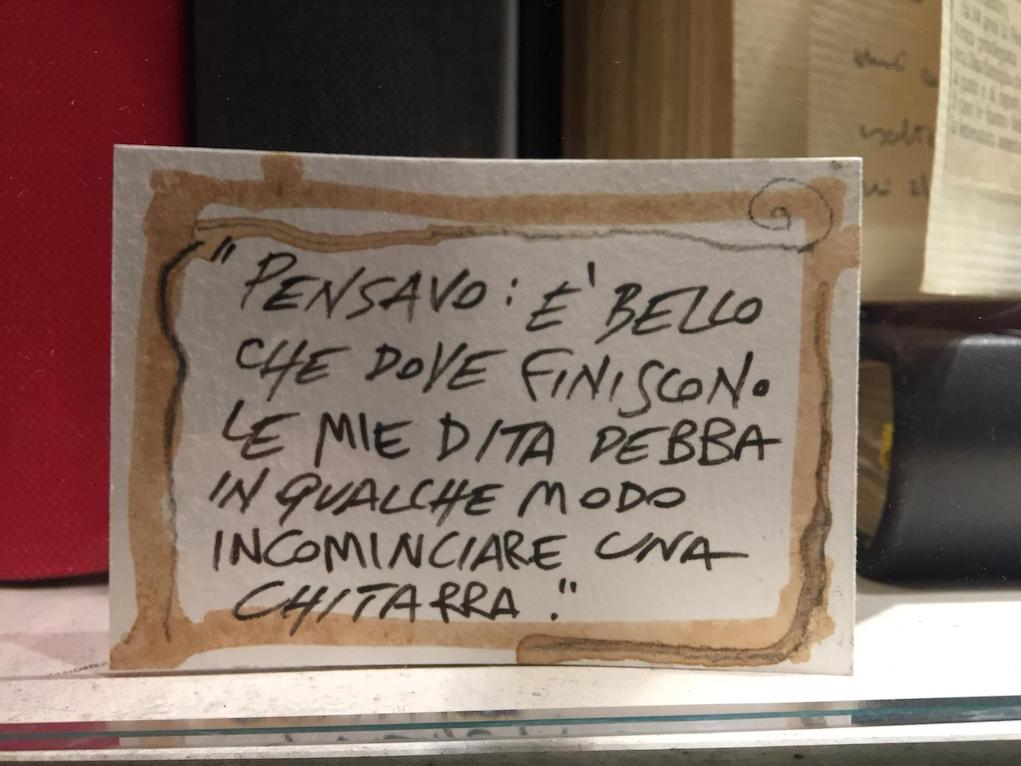 "PENSAVO: E' BELLO
CHE DOVE FINISCONO
LE MIE DITA DEBBA
IN QUALCHE MODO
INCOMINCIARE UNA
CHITARRA."